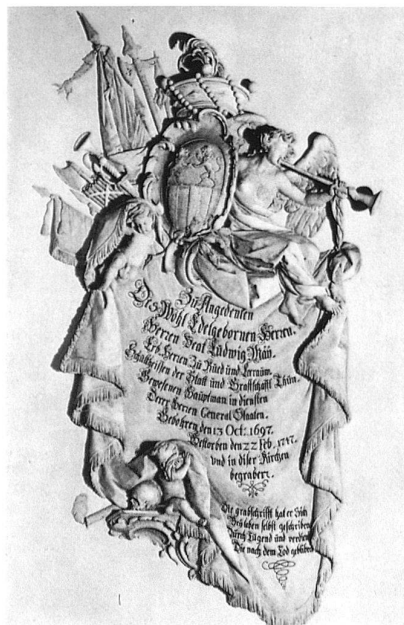 Zu Angedenken
Des Wohl Edelgebornen Herren.
Herren Beat Ludwig Maÿ.
Des Herren Zu Rued und Leeraüw.
Schultheissen der Statt und Graffschafft Thun.
Gewesenen Hauptman in diensten
Derer Herren General Staaten.
Gebohren den 13 Oct: 1697.
Gestorben den 22 Feb. 1747.
und in diser Kirchen
begraben
Die grabschrifft hat er Sich
Beÿ leben selbst geschriben
Durch Tugend und
Die nach dem Tod gebliben